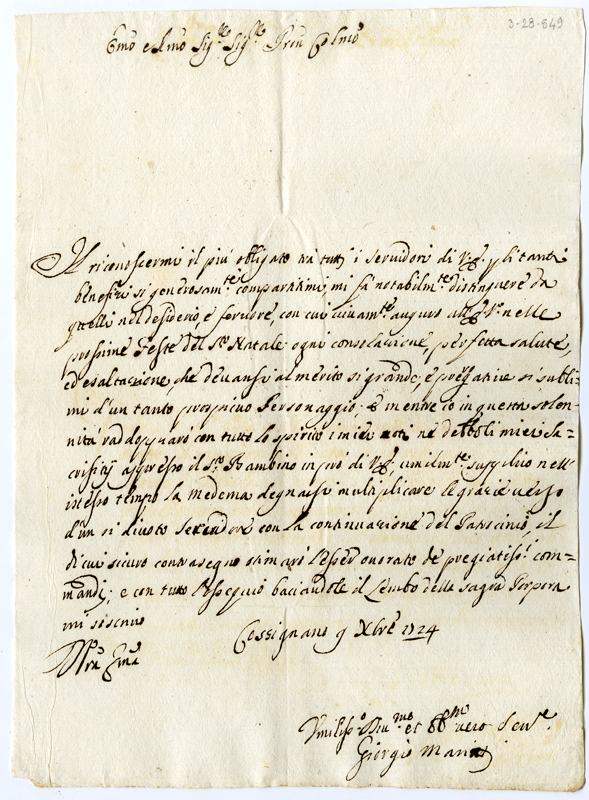 3-28-849
Emō e Rmō Sigre Sigre Prōn Colmō
Il riconoscermi il più obligato trà tutti i servidori di V.E. p li tanti
benefizi si generosamte compartitimi, mi fà notabilmte distinguere da
quelli nel desiderio, e fervore, con cui vivamte auguro all' nelle
prossime Feste del SSo Natale ogni consolazione, perfetta salute,
ed esaltazione, che devansi al merito si grande, e progative si subli=
mi d'un tanto prospicuo Personaggio; E mentre io in questa solen=
nità raddoppiarò con tutto lo spirito i miei voti ne debboli miei sa=
crificij appresso il So Bambino in prò di V.E. umilmte supplico nell'
istesso tempo la medema degnarsi multiplicare le grazie verso
d'un si divoto Servidore con la continuazione del Patrocinio, il
di cui sicuro contrasegno stimarò l'esser onorato de pregiatissi com=
mandi; e con tutto l'ossequio baciandole il Lembo della sagra Porpora
mi soscrivo
Cossignano 9 Xbre 1724
Vrā Emā
Umilisso Divmo et Obbmo vero Serve
Giorgio Marini